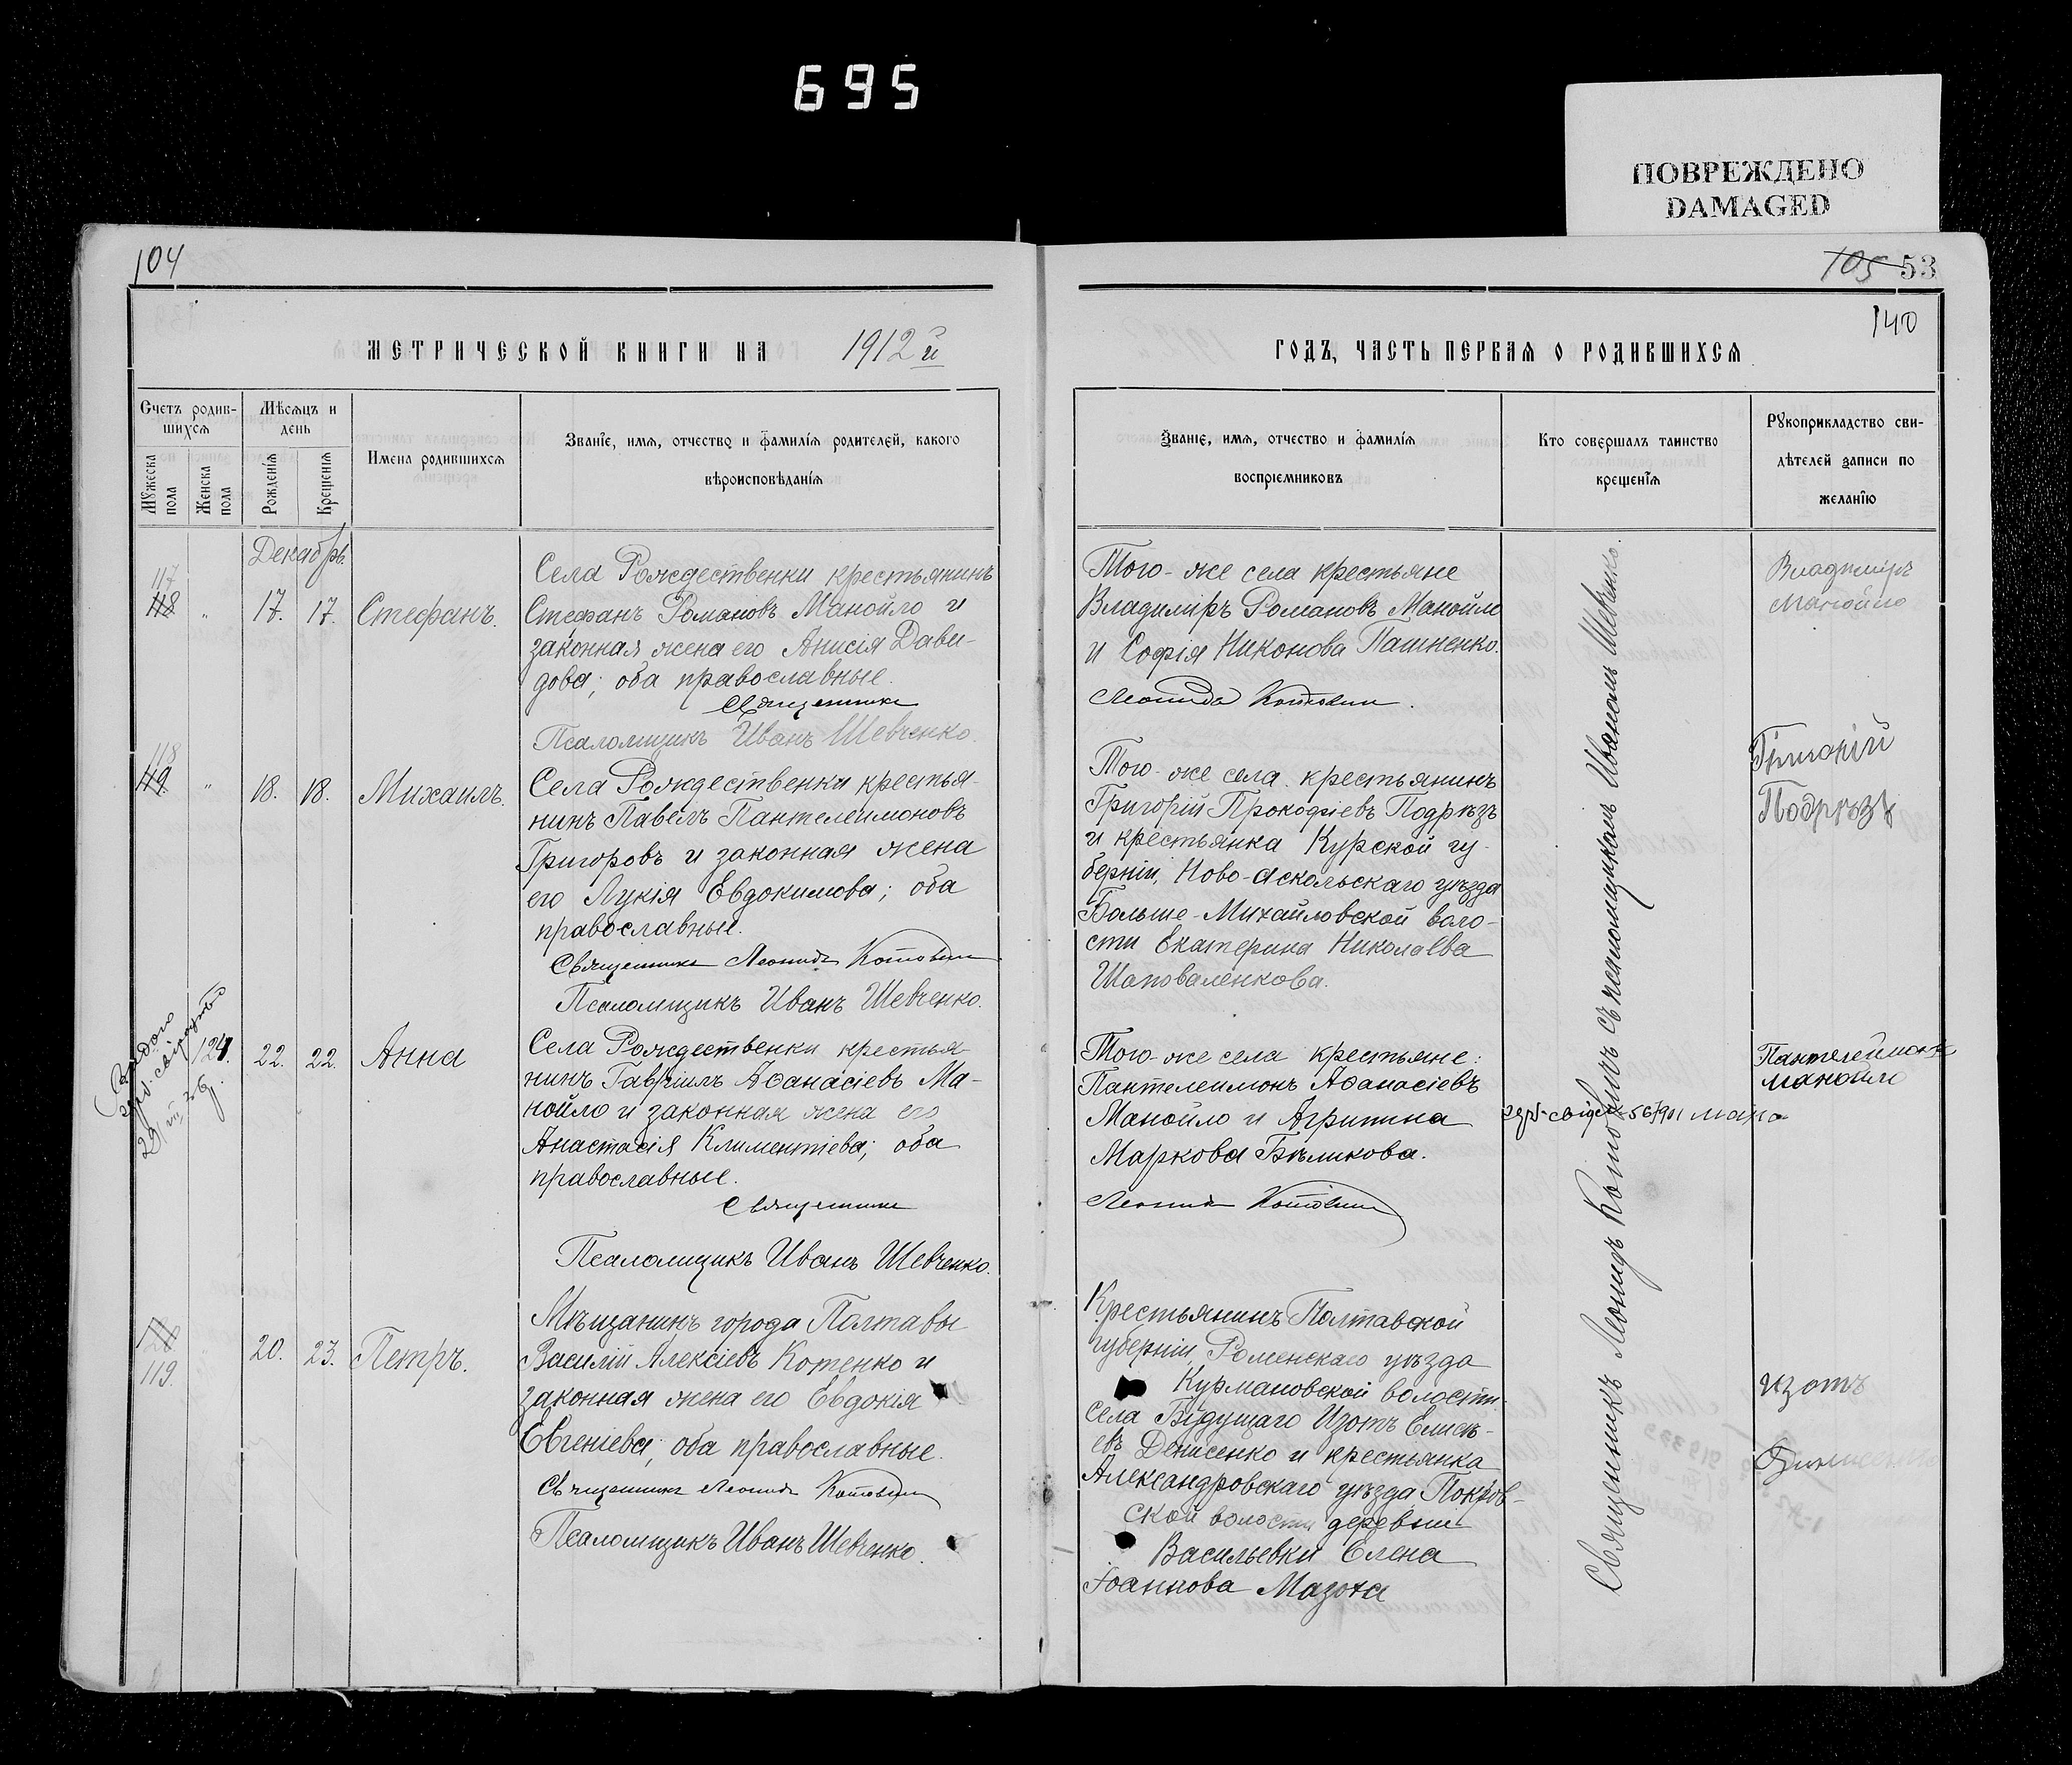 695
ПОВРЕЖДЕНО
DAMAGED
104
МЕТРИЧЕСКОЙ КНИГИ НА 1912й
Счетъ родив-
шихся
Мѣсяцъ и
день
Мужеска
пола
Женска
пола
Рожденія
Крещенія
Имена родившихся
Званіе, имя, отчество и фамилія родителей, какого
вѣроисповѣданія
Декабрь.
117
118 " 17. 17. Стефанъ.
Села Рождественки крестьянинъ
Стефанъ Романовъ Манойло и
законная жена его Анисія Дави-
дова; оба православные.
Священникъ
Псаломщикъ Иванъ Шевченко.
118
119. " 18. 18. Михаилъ.
Села Рождественки крестья-
нинъ Павелъ Пантелеимоновъ
Григоровъ и законная жена
его Лукія Евдокимова; оба
православные.
Священникъ Леонидъ Котовичъ
Псаломщикъ Иванъ Шевченко.
124. 22. 22. Анна
Села Рождественки крестья
нинъ Гавріилъ Аѳанасіевъ Ма-
нойло и законная жена его
Анастасія Климентіева; оба
православные.
Священникъ
Псаломщикъ Иванъ Шевченко.
120
119. 20. 23. Петръ.
Мѣщанинъ города Полтавы
Василій Алексіевъ Котенко и
законная жена его Евдокія
Евгеніева; оба православные.
Священникъ Леонидъ Котовичъ
Псаломщикъ Иванъ Шевченко.
105 53
140
ГОДЪ, ЧАСТЬ ПЕРВАЯ О РОДИВШИХСЯ
Званіе, имя, отчество и фамилія
воспріемниковъ
Кто совершалъ таинство
крещенія
Рукоприкладство сви-
дѣтелей записи по
желанію
Того-же села крестьяне
Владиміръ Романовъ Манойло
и Софія Никонова Пашненко.
Леонидъ Котовичъ.
Владиміръ
Манойло
Того-же села крестьянинъ
Григорій Прокофіевъ Подрѣзъ
и крестьянка Курской гу-
берніи, Ново-Аскольскаго уѣзда
Больше-Михайловской воло-
сти Екатерина Николаева
Шаповаленкова.
Подрѣзъ
Того-же села крестьяне:
Пантелеимонъ Аѳанасіевъ
Манойло и Агрипина
Маркова Бѣликова.
Леонидъ Котовичъ
Пантелеймонъ
Манойло
Крестьянинъ Полтавской
губерніи, Роменскаго уѣзда
Курмановской волости
села Будущаго Изотъ Елисѣ-
евъ Денисенко и крестьянка
Александровскаго уѣзда Покров-
ской волости деревни
Васильевки Елена
Іоаннова Мазоха
Изотъ
Священникъ Леонидъ Котовичъ съ псаломщикомъ Иваномъ Шевченко.